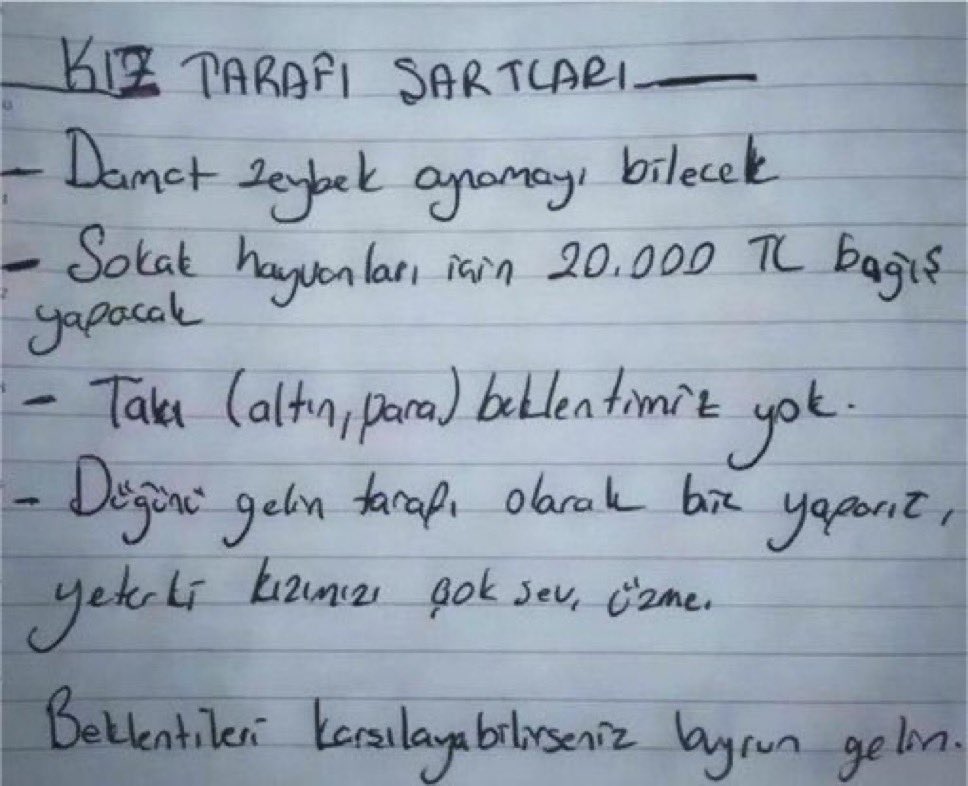 KIZ TARAFI ŞARTLARI
- Damat zeybek oynamayı bilecek
- Sokak hayvanları için 20.000 TL bağış
yapacak
- Takı (altın, para) beklentimiz yok.
- Düğünü gelin tarafı olarak biz yaparız,
yeterki kızımızı çok sev, üzme.
Beklentileri karşılayabilirseniz buyrun gelin.